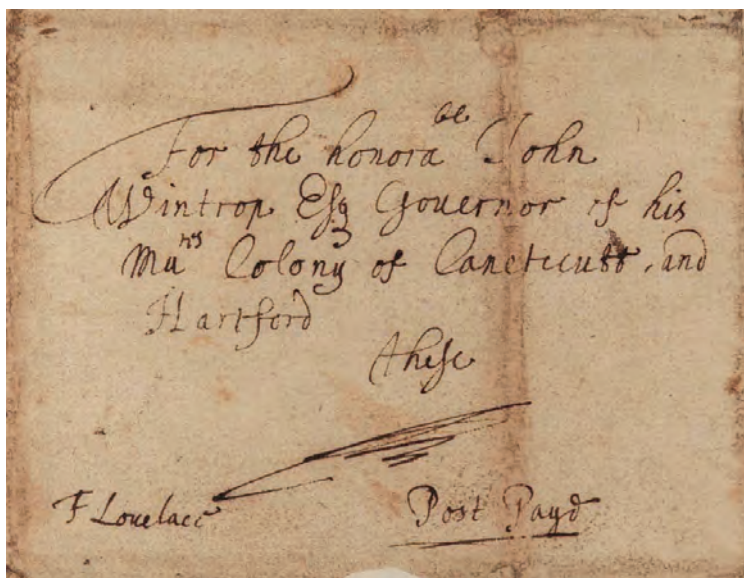 For the honora^ble John
Wintrop Esq Gouernor of his
Ma^ties Colony of Canecticutt, and
Hartford
these
F Louelace
Post Payd